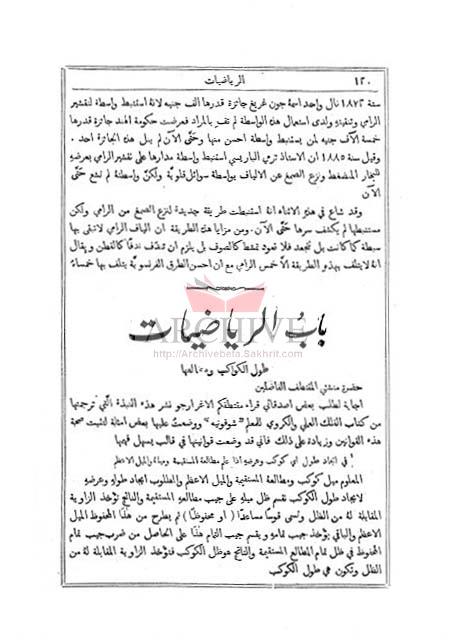 ١٢٠ الرياضيات
سنة ١٨٧٢ نال واحد اسمهُ جون غريغ جائزة قدرها الف جنيه لانهُ استنبط واسطة لتقشير
الرامي وتنقيتهِ ولدى استعمال هذه الواسطة لم تفِ بالمراد فعرضت حكومة الهند جائزة قدرها
خمسة آلاف جنيه لمن يستنبط واسطة احسن منها وحتَّى الآن لم ينل هذه الجائزة احد .
وقبل سنة ١٨٨٥ ان الاستاذ ترمي الباريسي استنبط واسطة مدارها على تقشير الرامي بعرضهِ
للبخار المنضغط ونزع الصمغ عن الالياف بواسطة سوائل قلويَّة ولكنَّ واسطتهُ لم تشع حتَّى
الآن
وقد شاع في هذه الاثناء انهُ استنبطت طريقة جديدة لنزع الصمغ من الرامي ولكن
مستنبطها لم يكشف سرها حتَّى الآن . ومن مزايا هذه الطريقة ان الياف الرامي لا تبقى بها
سبطة كما كانت بل تتجعد فلا تعود تمشط كالصوف بل يلزم ان تندَف ندفًا كالقطن ويقال
انهُ لا يتلف بهذه الطريقة الَّا خمس الرامي مع ان احسن الطرق الفرنسوية يتلف بها خمساهُ
باب الرياضيات
ARCHIVE
http://Archivebeta.Sakhrit.com
طول الكواكب ومطالعها
حضرة منشئي المقتطف الفاضلين
اجابة لطلب بعض اصدقائي قراء مقتطفكم الاغر ارجو نشر هذه النبذة الَّتي ترجمتها
من كتاب الفلك العلي والكروي للمعلم "شوفونيه" ووضعت عليها بعض امثلة لتثبت صحة
هذه القوانين وزيادة على ذلك فاني قد وضعت قوانينها في قالب يسهل فهمها
في ايجاد طول اي كوكب وعرضهِ اذا علم مطالعهُ المستقيمة وميلهُ والميل الاعظم
المعلوم ميل كوكب ومطالعهُ المستقيمة والميل الاعظم والمطلوب ايجاد طولهِ وعرضهِ
لايجاد طول الكوكب نقسم ظل ميلهِ على جيب مطالعهِ المستقيمة والناتج تؤخذ الزاوية
المقابلة لهُ من الظل وتسمى قوسًا مساعدًا ( او محفوظًا ) ثم يطرح من هذا المحفوظ الميل
الاعظم والباقي يؤخذ جيب تمامهِ ويقسم جيب التمام هذا على الحاصل من ضرب جيب تمام
المحفوظ في ظل تمام المطالع المستقيمة والناتج هو ظل الكوكب فتؤخذ الزاوية المقابلة لهُ من
الظل وتكون هي طول الكوكب